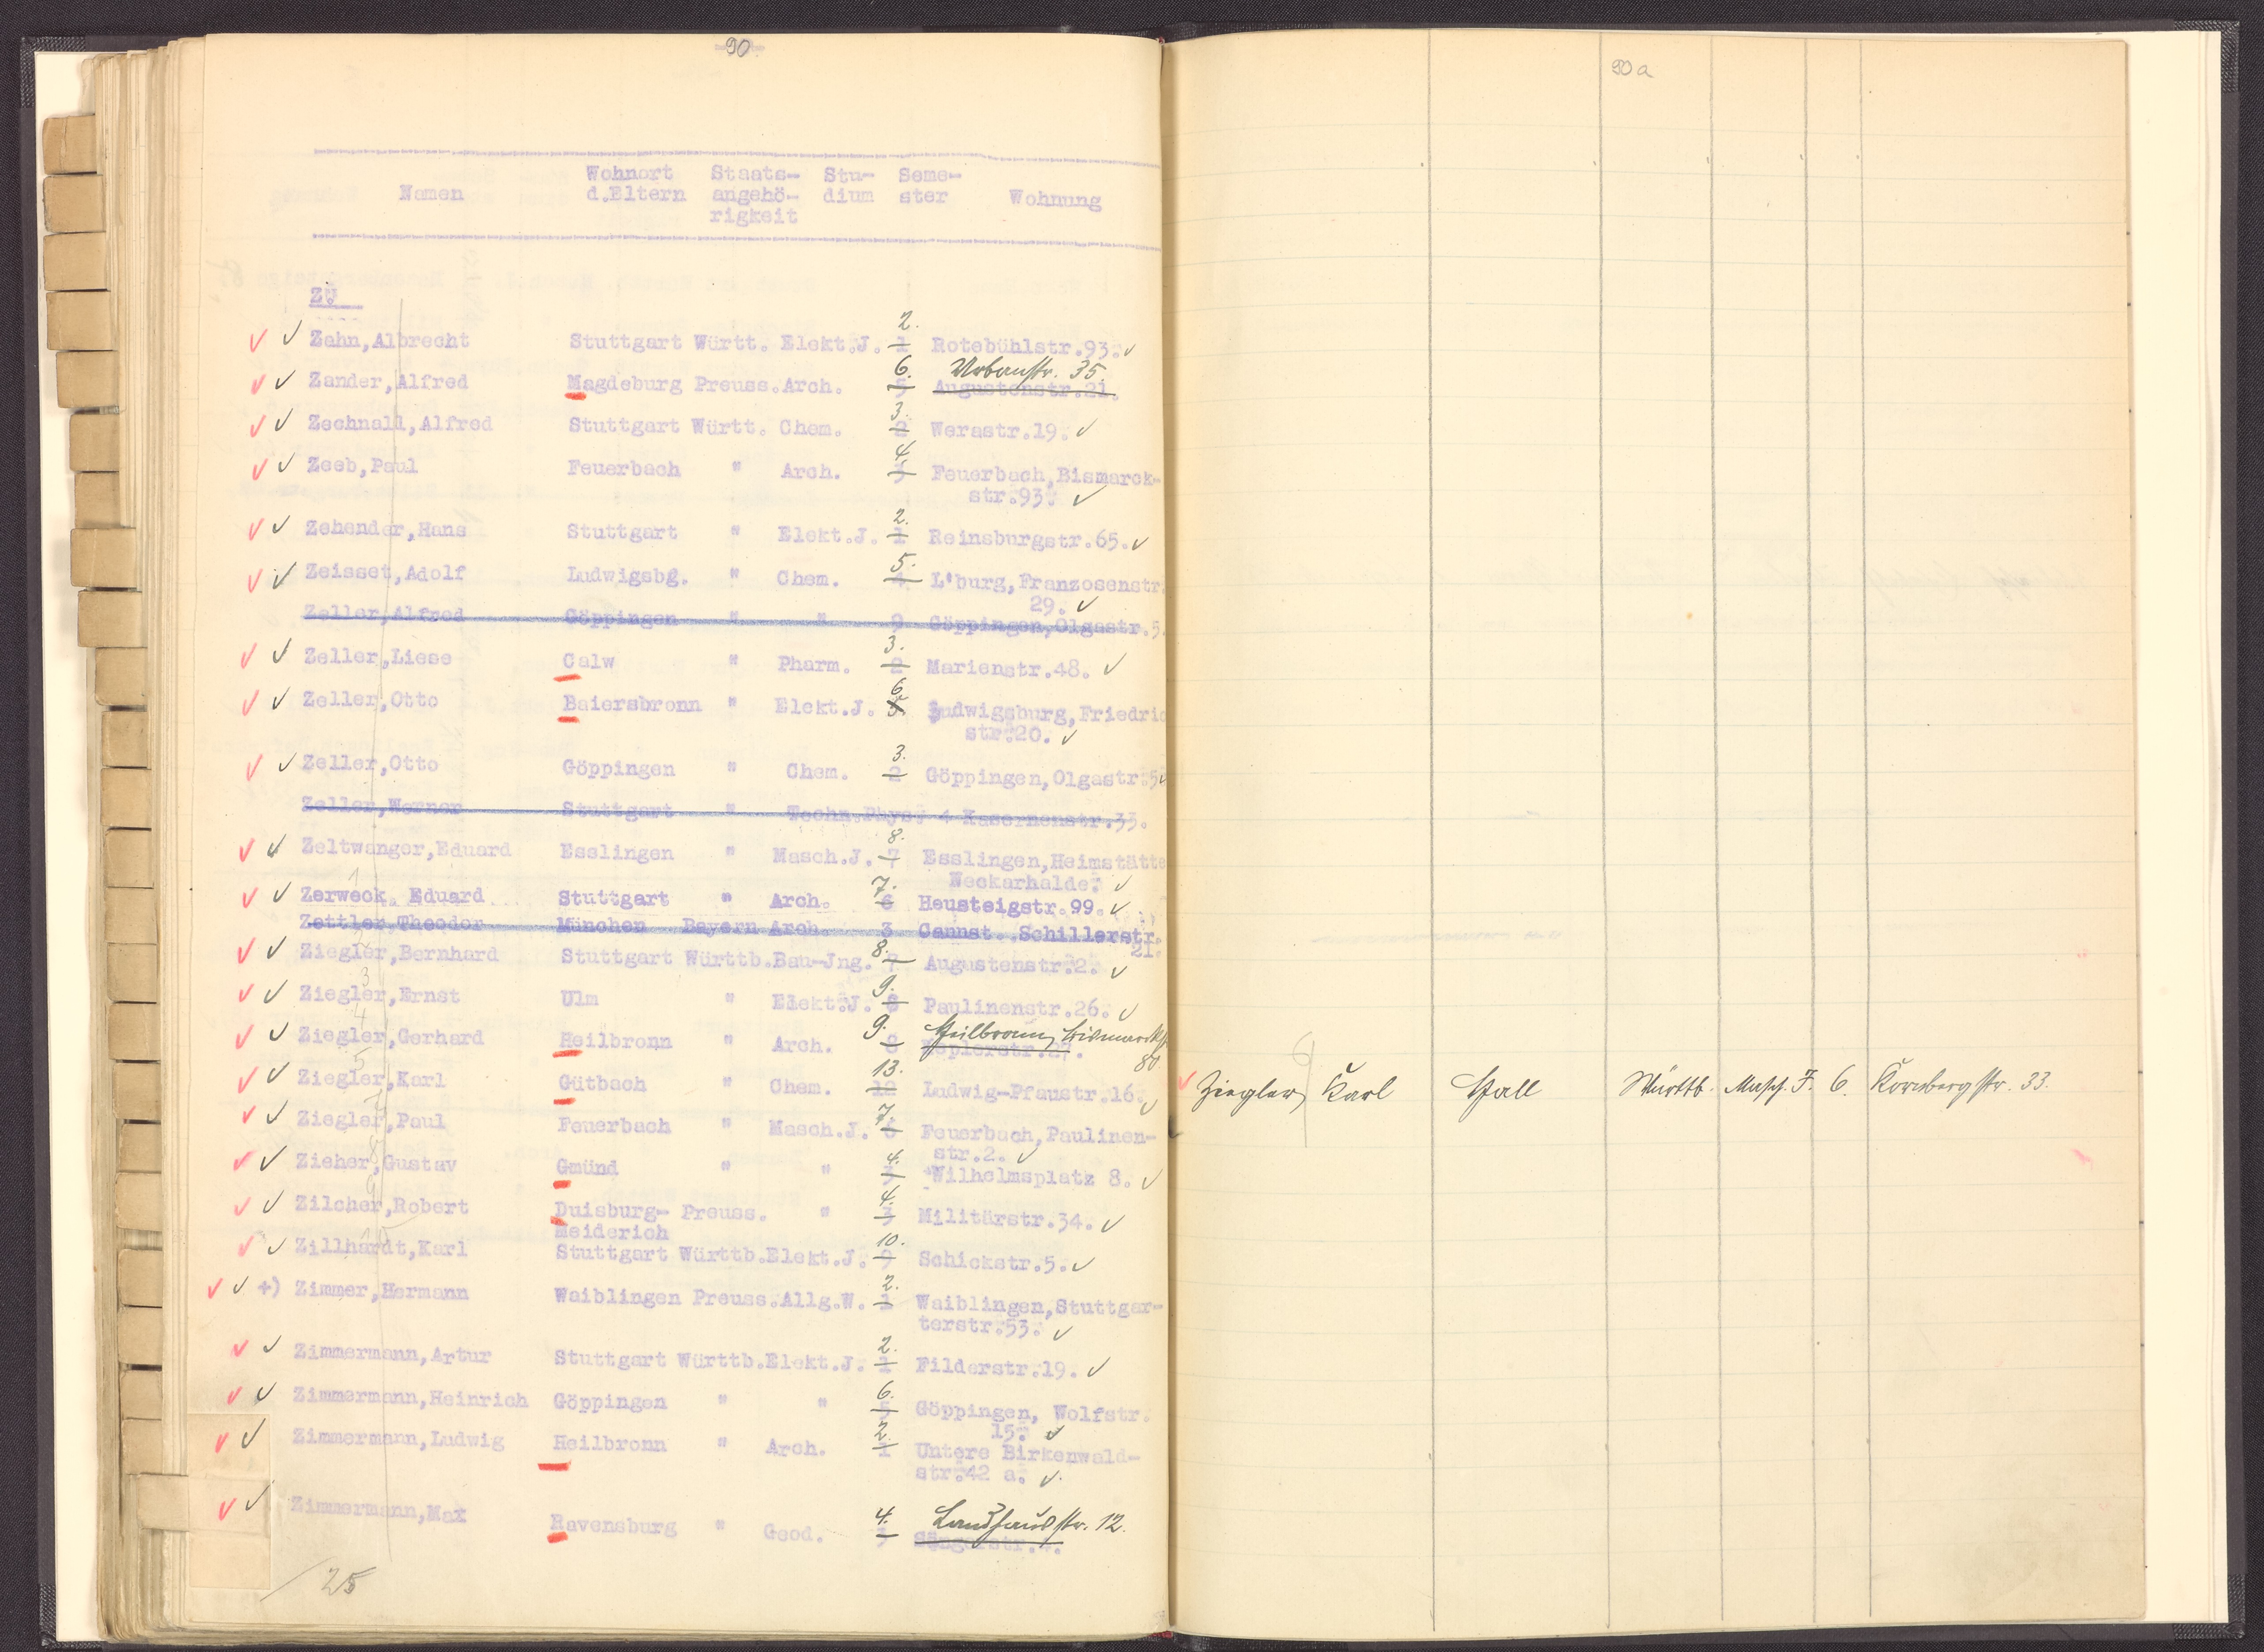 90
Namen Wohnort d.Eltern Staats-angehö-rigkeit Stu-dium Seme-ster Wohnung
Zahn,Albrecht Stuttgart Württ. Elekt.J. 1 2. Rotebühlstr.93.
Zander,Alfred Magdeburg Preuss.Arch. 5 6. Augustenstr.21. Urbanstr. 35
Zechnall,Alfred Stuttgart Württ. Chem. 2 3. Werastr.19.
Zeeb,Paul Feuerbach " Arch. 3 4 Feuerbach,Bismarck-
str.93.
Zehender,Hans Stuttgart " Elekt.J. 1 2. Reinsburgstr.65.
Zeisset,Adolf Ludwigsbg. " Chem. 4 5. L'burg,Franzosenstr.
29.
Zeller,Alfred Göppingen " " 9 Göppingen,Olgastr.5.
Zeller,Liese Calw " Pharm. 2 3. Marienstr.48.
Zeller,Otto Baiersbronn " Elekt.J. 6. Ludwigsburg,Friedric
str.20.
Zeller,Otto Göppingen " Chem. 2 3. Göppingen,Olgastr.5
Zeller,Werner Stuttgart " Techn.Phys. 4 Kasernenstr.33.
Zeltwanger,Eduard Esslingen " Masch.J. 7 8. Esslingen,Heimstätte
Neckarhalde.
Zerweck, Eduard Stuttgart " Arch. 6 7. Heusteigstr.99.
Zettler,Theodor München Bayern Arch. 3 Cannst. Schillerstr.
21.
Ziegler,Bernhard Stuttgart Württb.Bau-Jng. 7 8. Augustenstr.2.
Ziegler,Ernst Ulm " Elekt.J. 8 9. Paulinenstr.26.
Ziegler,Gerhard Heilbronn " Arch. 8 9. Keplerstr.27. Heilbronn, Bismarckstr
80
Ziegler,Karl Gütbach " Chem. 12 13. Ludwig-Pfaustr.16.
Ziegler,Paul Feuerbach " Masch.J. 6 7. Feuerbach,Paulinen-
str.2.
Zieher,Gustav Gmünd " " 3 4. Wilhelmsplatz 8.
Zilcher,Robert Duisburg- Preuss. " 3 4. Militärstr.34.
Meiderich
Zillhardt,Karl Stuttgart Württb.Elekt.J. 9 10. Schickstr.5.
+) Zimmer,Hermann Waiblingen Preuss.Allg.W. 1 2. Waiblingen,Stuttgar-
terstr.53.
Zimmermann,Artur Stuttgart Württb.Elekt.J. 1 2. Filderstr.19.
Zimmermann,Heinrich Göppingen " " 5 6. Göppingen, Wolfstr.
15.
Zimmermann,Ludwig Heilbronn " Arch. 1 2. Untere Birkenwald-
str.42 a.
Zimmermann,Max Ravensburg " Geod. 3 4. Sängerstr. Landhausstr. 12.
25
90 a
6
Ziegler, Karl Hall Württb. Masch. J. 6. Kornbergstr. 33.